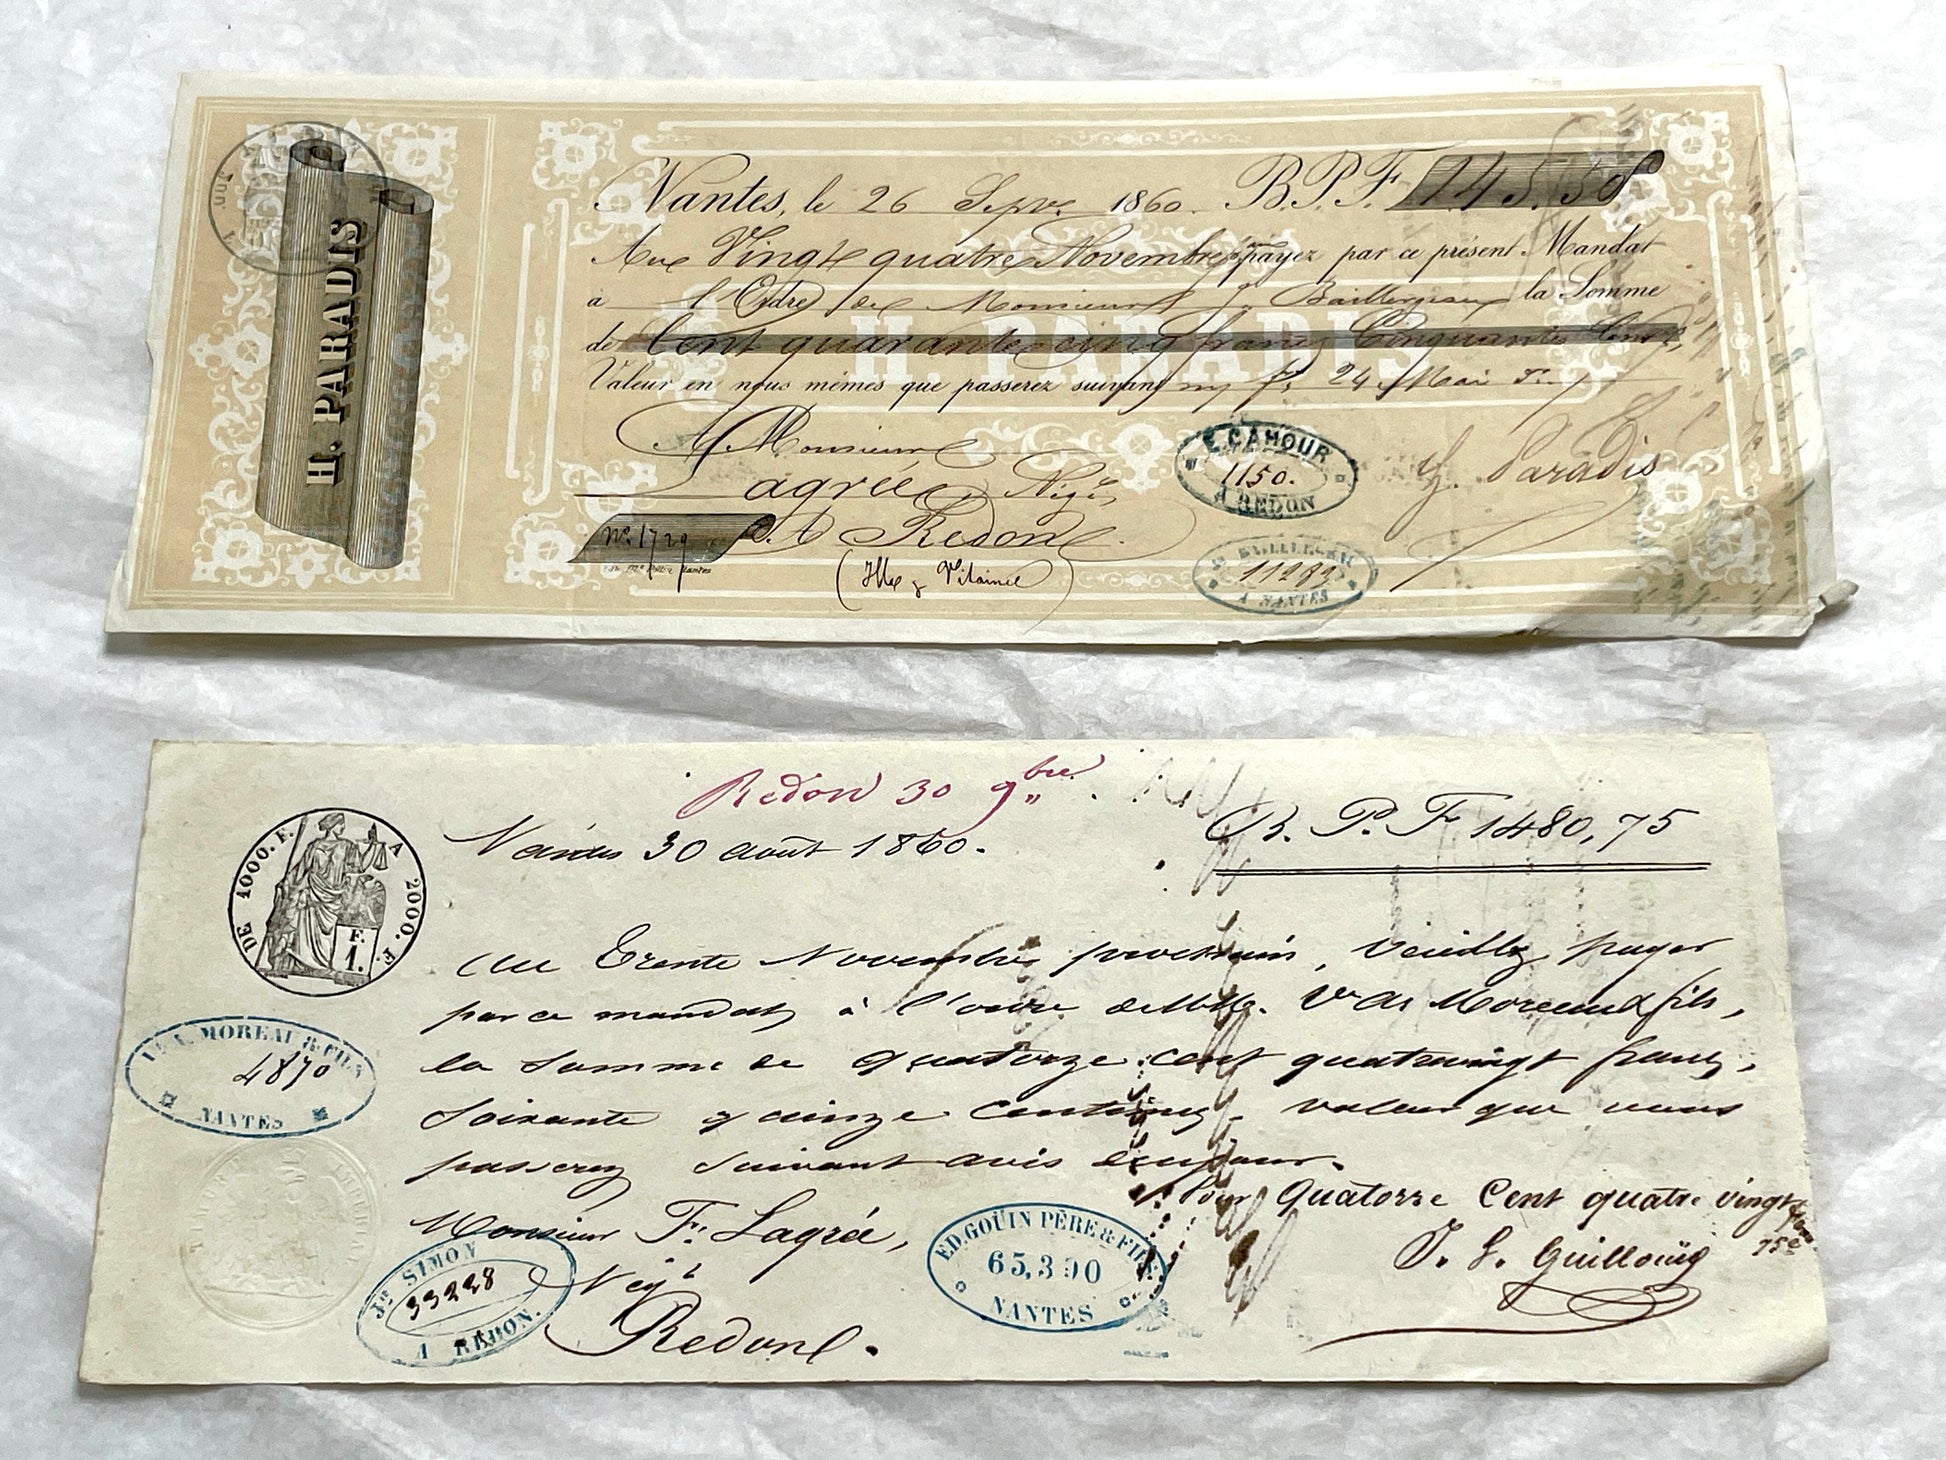 H. PARADIS
Nantes, le 26 Sepbre 1860. B.P.F. 145.50
Au Vingt quatre Novembre payez par ce présent Mandat
à l'Ordre de Monsieur J. Baillergeau la Somme
de Cent quarante cinq francs Cinquante Cent.
H. PARADIS
Valeur en nous mêmes que passerez suivant 24 Mai
A Monsieur
Lagrée, Négt
E. CAHOUR
1150.
A REDON
H. Paradis
No. 1729
A Redon.
(Ille & Vilaine)
BAILLERGEAU
11283
A NANTES
Redon 30 9bre.
Nantes 30 août 1860.
B. P. F 1480,75
DE 1000. F. A 2000. F.
F.
1.
Au Trente Novembre prochain, veuillez payer
par ce mandat, à l'ordre de MM. Ve A. Moreau & fils,
la somme de quatorze cent quatrevingt francs,
soixante quinze centimes, valeur que vous
passerez suivant avis
VE A. MOREAU & FILS
4870
NANTES
Pour Quatorze Cent quatre vingt
75c
Monsieur F. Lagrée,
Négt
Redon.
Jn SIMON
33228
A REDON.
ED. GOÜIN PÈRE & FILS
65,390
NANTES
J. L. Guilloüy